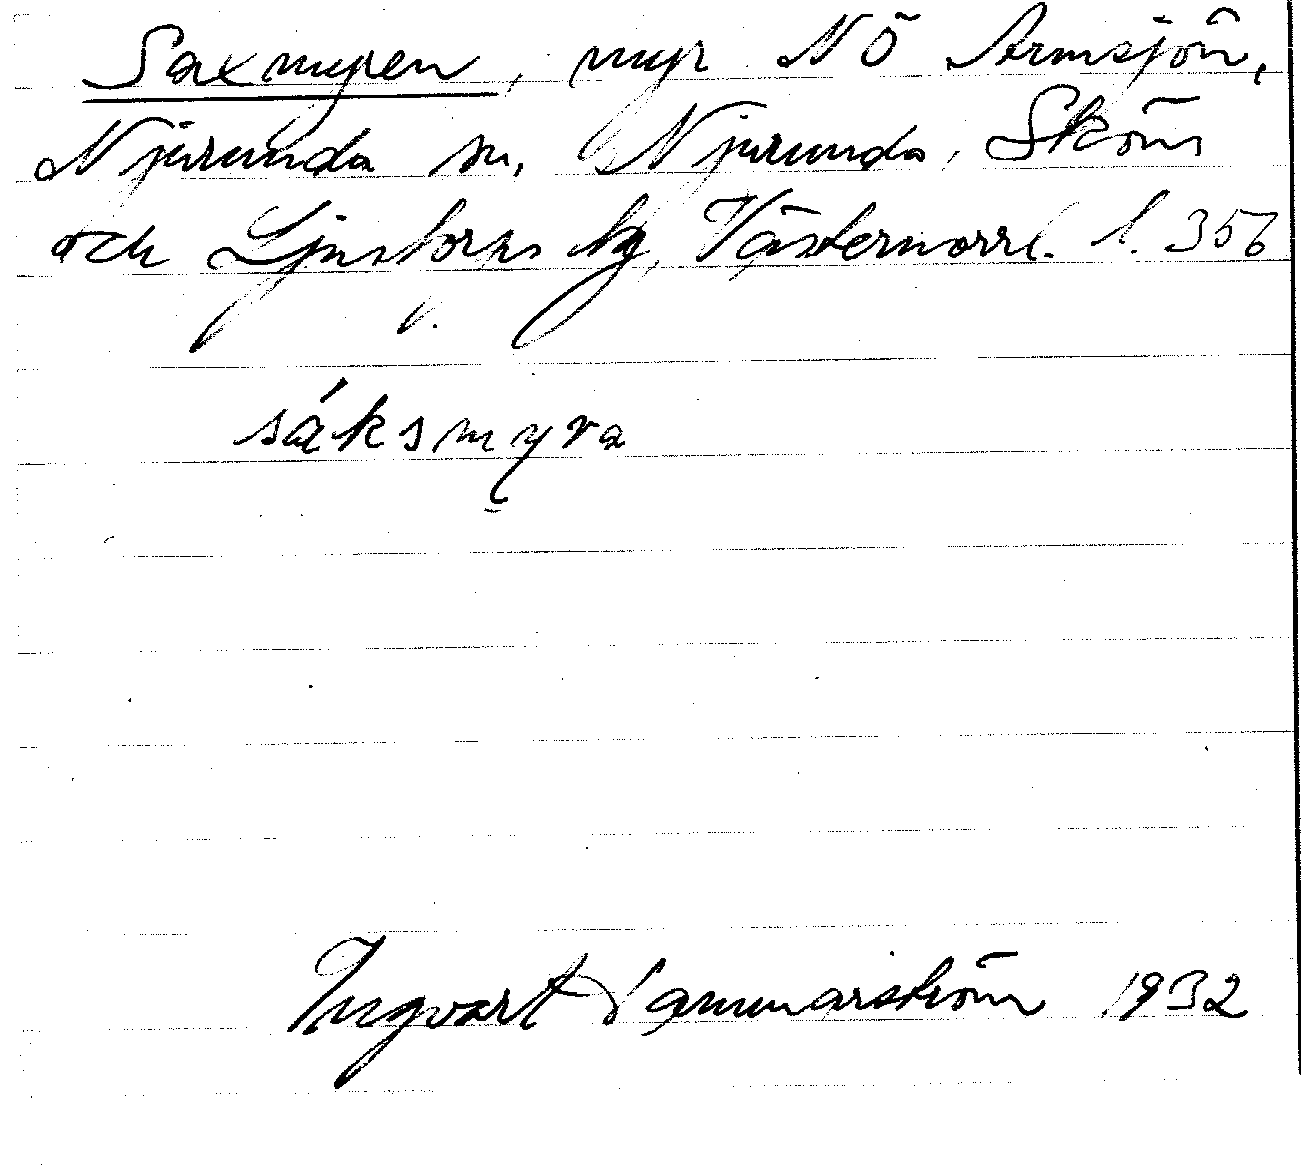 Saxmyren, myr NÖ Armsjön,
Njurunda sn, Njurunda, Sköns
och Ljustorps tg, Västernorrl. l. 356
y.
sáksmyra
Ingvart Hammarström 1932